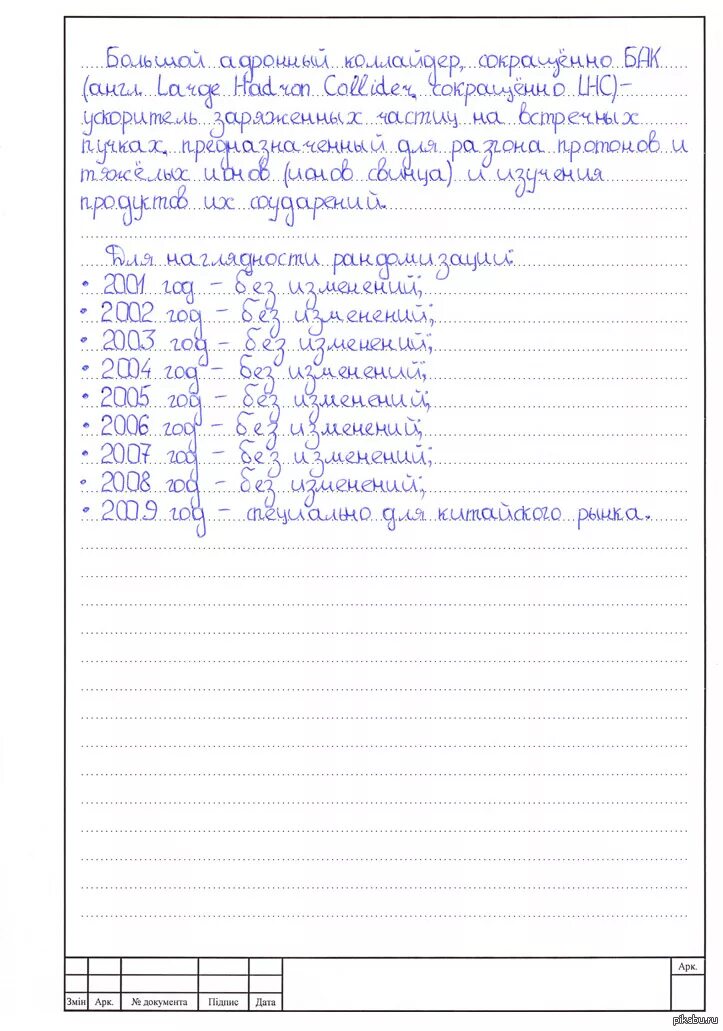 Большой адронный коллайдер, сокращённо БАК
(англ. Large Hadron Collider, сокращённо LHC)–
ускоритель заряженных частиц на встречных
пучках, предназначенный для разгона протонов и
тяжёлых ионов (ионов свинца) и изучения
продуктов их соударений.
Для наглядности рандомизации:
• 2001 год – без изменений;
• 2002 год – без изменений;
• 2003 год – без изменений;
• 2004 год – без изменений;
• 2005 год – без изменений;
• 2006 год – без изменений;
• 2007 год – без изменений;
• 2008 год – без изменений;
• 2009 год – специально для китайского рынка.
Арк.
Змін Арк. № документа Підпис Дата
pikabu.ru